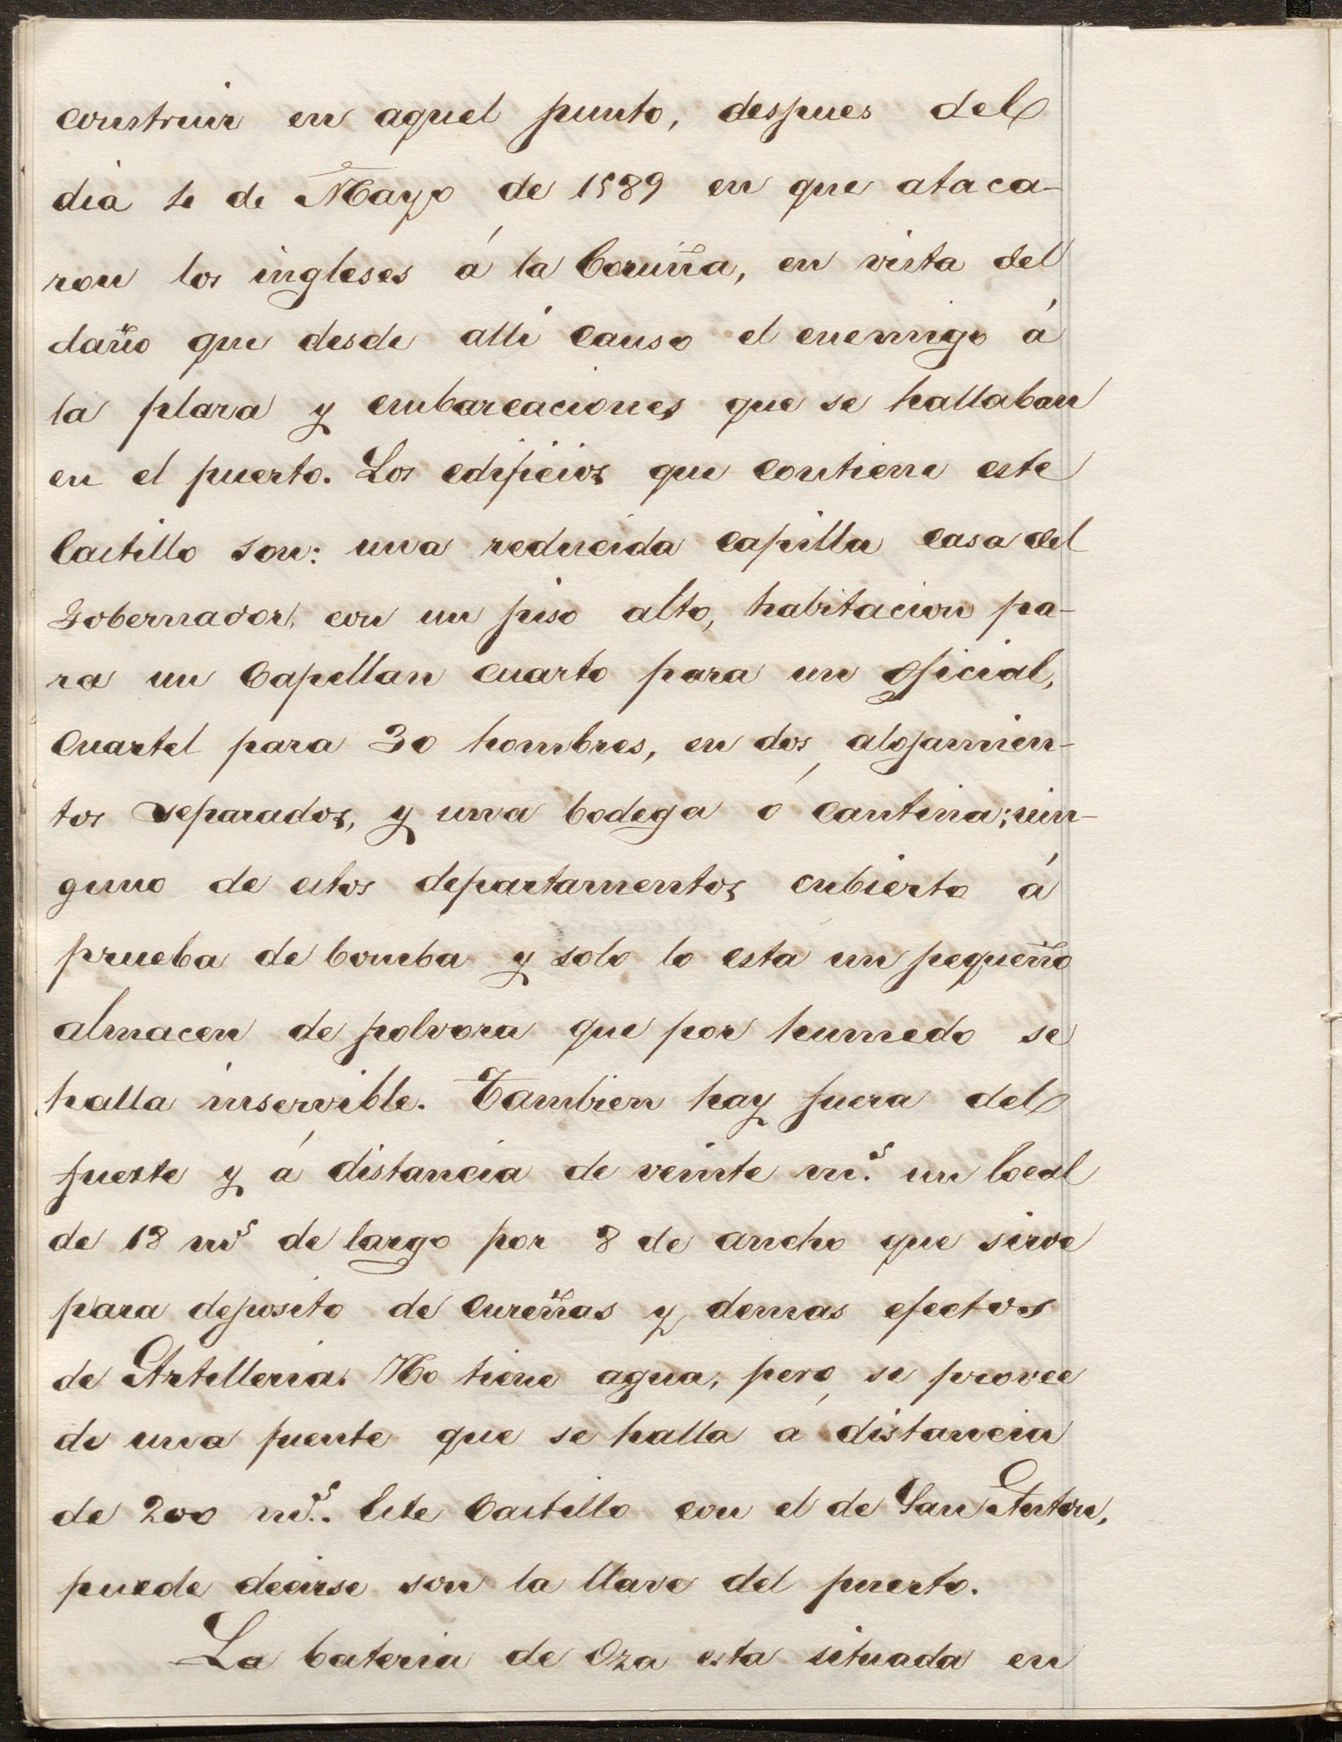 construir en aquel punto, despues del
dia 4 de Mayo de 1589 en que ataca-
ron los ingleses á la Coruña, en vista del
daño que desde alli causo el enemigo á
la plaza y embarcaciones que se hallaban
en el puerto. Los edificios que contiene este
Castillo son: una reducida capilla casa del
Gobernador, con un piso alto, habitacion pa-
ra un Capellan cuarto para un oficial,
Cuartel para 30 hombres, en dos alojamien-
tos separados, y una bodega ó cantina; nin-
guno de estos departamentos cubierto á
prueba de bomba y solo lo está un pequeño
almacen de polvora que por humedo se
halla inservible. Tambien hay fuera del
fuerte y á distancia de veinte m.s un local
de 18 m.s de largo por 8 de ancho que sirve
para deposito de cureñas y demas efectos
de Artilleria. No tiene agua, pero se provee
de una fuente que se halla á distancia
de 200 m.s. Este Castillo con el de San Anton,
puede decirse son la llave del puerto.
La bateria de Oza esta situada en